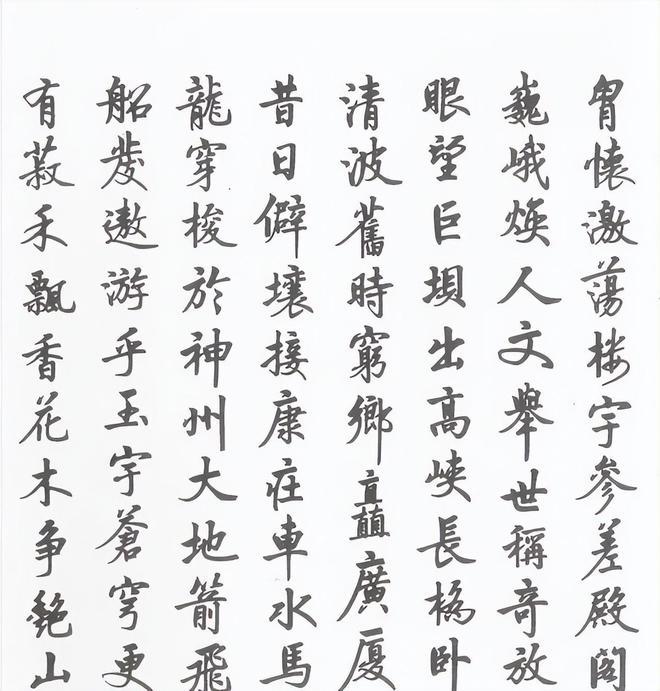 胷懷激蕩楼宇參差殿閣
巍峨煥人文舉世稱奇放
眼望巨垻出高峽長橋卧
清波舊時窮鄉矗廣廈
昔日僻壤接康庄車水馬
龍穿梭於神州大地箭飛
船發遨游乎玉宇蒼穹更
有菽禾飄香花木争艷山